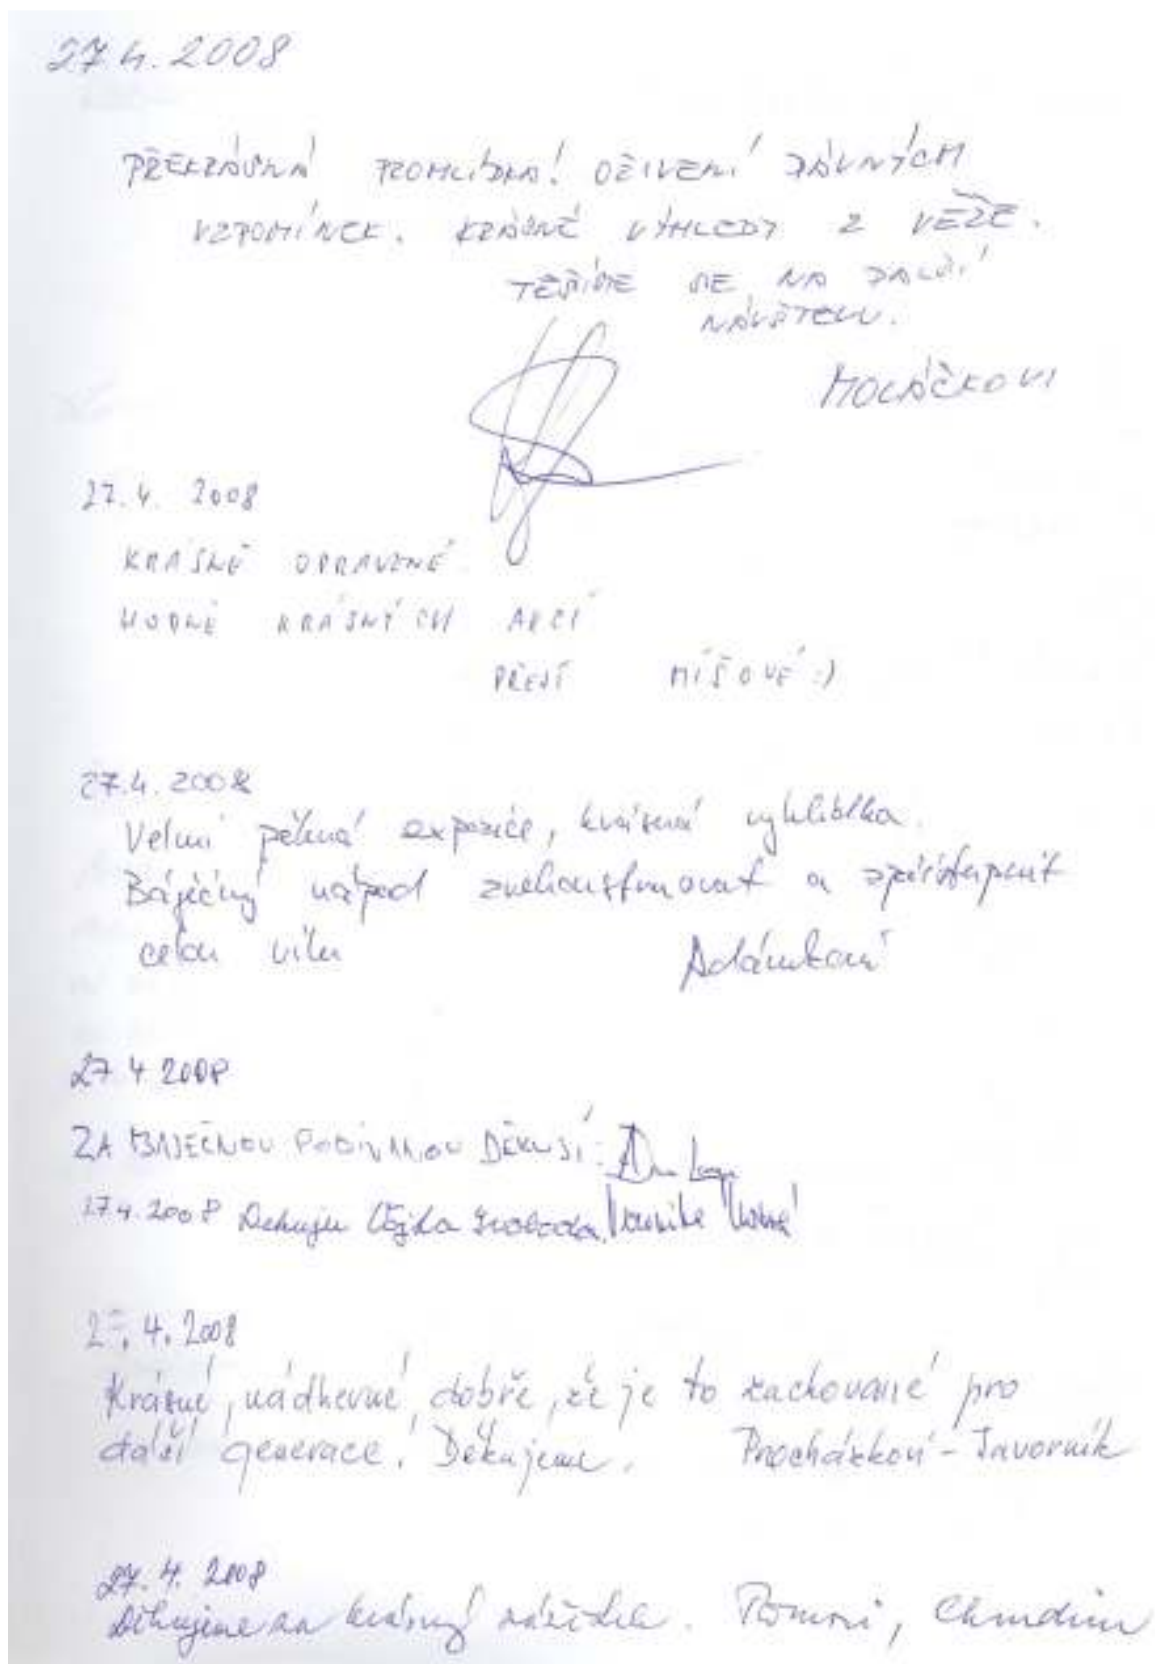 27.4.2008
PŘEKRÁSNÁ PROHLÍDKA! OŽIVENÍ DÁVNÝCH
VZPOMÍNEK. KRÁSNÉ VÝHLEDY Z VĚŽE.
TĚŠÍME SE NA DALŠÍ
NÁVŠTĚVU.
MOLÁČKOVI
27.4. 2008
KRÁSNĚ OPRAVENÉ
HODNĚ KRÁSNÝCH AKCÍ
PŘEJÍ MÍŠOVÉ :)
27.4.2008
Velmi pěkná expozice, krásná vyhlídka.
Báječný nápad zrekonstruovat a zpřístupnit
celou vilu Adámkovi
27.4.2008
ZA BÁJEČNOU PODÍVANOU DĚKUJÍ:
27.4.2008 Děkuju Vojta Svoboda,
27.4.2008
Krásné, nádherné, dobře, že je to zachované pro
další generace. Děkujeme. Procházkovi - Javorník
27.4.2008
Děkujeme za krásný zážitek. , Chrudim